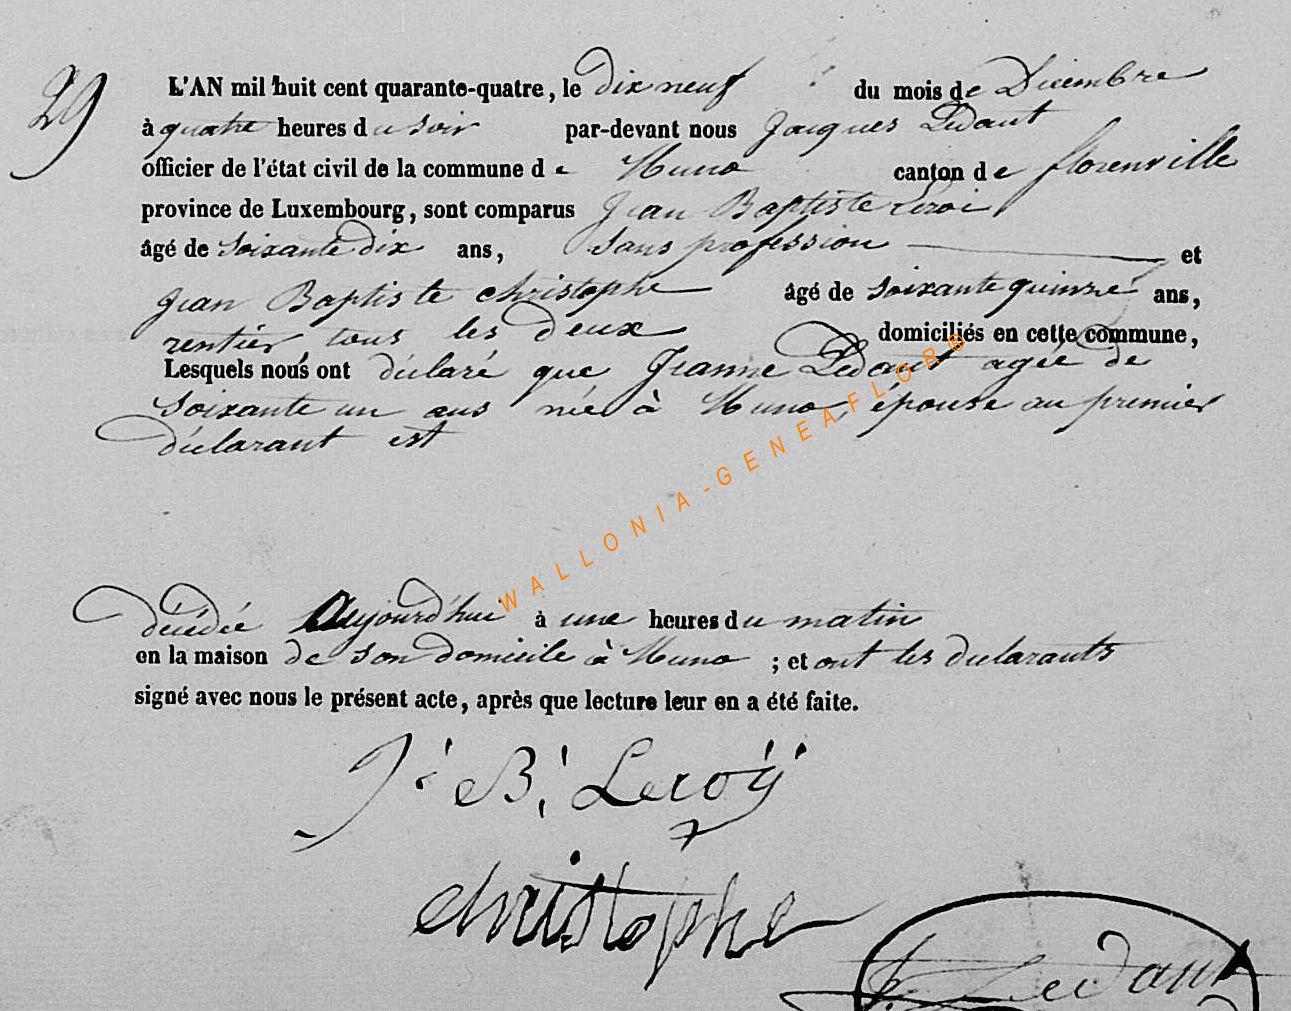 29
L'AN mil huit cent quarante-quatre, le dix neuf du mois de Décembre
à quatre heures du soir par-devant nous Jacques Ledant
officier de l'état civil de la commune de Muno canton de florenville
province de Luxembourg, sont comparus Jean Baptiste Leroi
âgé de soixante dix ans, sans profession et
Jean Baptiste christophe âgé de soixante quinze ans,
rentier tous les deux domiciliés en cette commune,
Lesquels nous ont déclaré que Jeanne Ledant agée de
soixante un ans née à Muno, épouse au premier
déclarant est
décédée Aujourd'hui à une heures du matin
en la maison de son domicile à Muno ; et ont les déclarants
signé avec nous le présent acte, après que lecture leur en a été faite.
J. B. Leroÿ
christophe
J. Ledant
WALLONIA-GENEAFLOR®